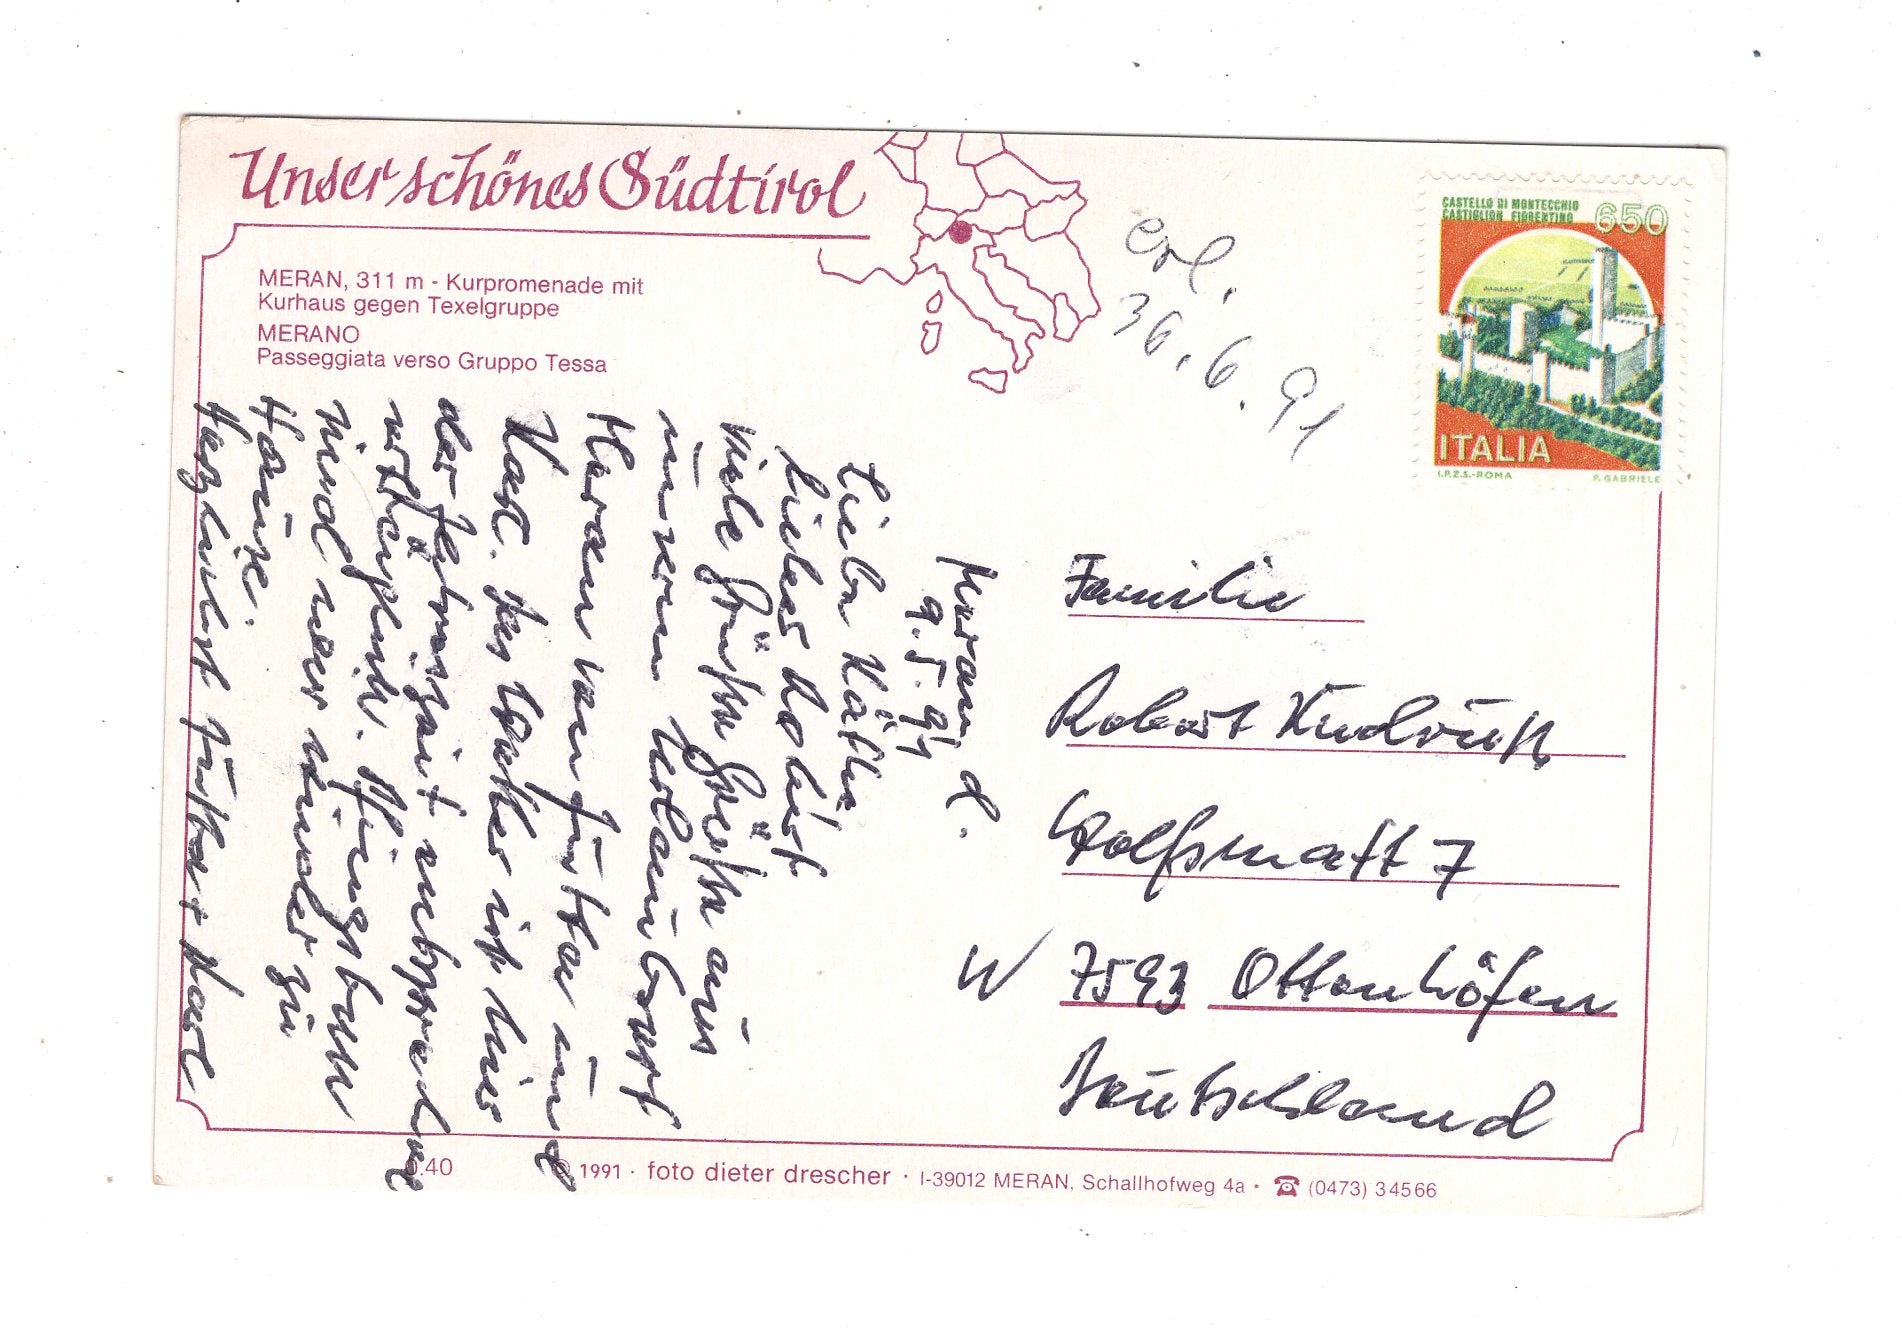 Unser schönes Südtirol
MERAN, 311 m - Kurpromenade mit
Kurhaus gegen Texelgruppe
MERANO
Passeggiata verso Gruppo Tessa
erl.
30.6.91
CASTELLO DI MONTECCHIO
CASTIGLION FIORENTINO
650
ITALIA
I.P.Z.S.-ROMA P. GABRIELE
Meran d.
9.5.91
Liebe Käthe
Liebes Robert
Viele Grüße aus
unserem Urlaubsort
Meran von und
Karl. Das Wetter ist hier
der Jahreszeit entsprechend
Pfingsten
sind wir wieder zu
Hause.
Herzlichst + Karl
Familie
Robert
Wolfsmatt 7
W 7593 Ottenhöfen
Deutschland
0.40 © 1991 · foto dieter drescher · I-39012 MERAN, Schallhofweg 4a · ☎ (0473) 34566